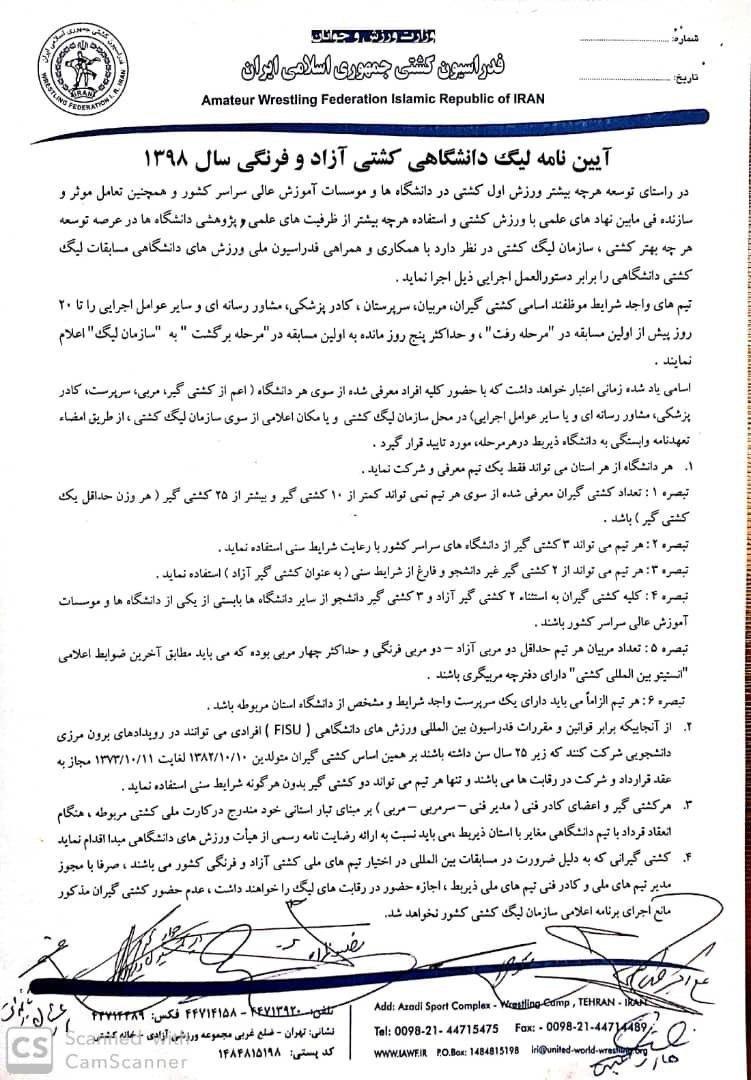 شماره:
تاریخ:
وزارت ورزش و جوانان
فدراسیون کشتی جمهوری اسلامی ایران
Amateur Wrestling Federation Islamic Republic of IRAN
فدراسیون کشتی جمهوری اسلامی ایران
IRAN
WRESTLING FEDERATION I. R. IRAN
آیین نامه لیگ دانشگاهی کشتی آزاد و فرنگی سال ۱۳۹۸
در راستای توسعه هرچه بیشتر ورزش اول کشتی در دانشگاه ها و موسسات آموزش عالی سراسر کشور و همچنین تعامل موثر و
سازنده فی مابین نهاد های علمی با ورزش کشتی و استفاده هرچه بیشتر از ظرفیت های علمی و پژوهشی دانشگاه ها در عرصه توسعه
هر چه بهتر کشتی ، سازمان لیگ کشتی در نظر دارد با همکاری و همراهی فدراسیون ملی ورزش های دانشگاهی مسابقات لیگ
کشتی دانشگاهی را برابر دستورالعمل اجرایی ذیل اجرا نماید .
تیم های واجد شرایط موظفند اسامی کشتی گیران، مربیان، سرپرستان ، کادر پزشکی، مشاور رسانه ای و سایر عوامل اجرایی را تا ۲۰
روز پیش از اولین مسابقه در "مرحله رفت" ، و حداکثر پنج روز مانده به اولین مسابقه در"مرحله برگشت " به "سازمان لیگ" اعلام
نمایند .
اسامی یاد شده زمانی اعتبار خواهد داشت که با حضور کلیه افراد معرفی شده از سوی هر دانشگاه ( اعم از کشتی گیر، مربی، سرپرست، کادر
پزشکی، مشاور رسانه ای و یا سایر عوامل اجرایی) در محل سازمان لیگ کشتی و یا مکان اعلامی از سوی سازمان لیگ کشتی ، از طریق امضاء
تعهدنامه وابستگی به دانشگاه ذیربط درهرمرحله، مورد تایید قرار گیرد .
۱. هر دانشگاه از هر استان می تواند فقط یک تیم معرفی و شرکت نماید .
تبصره ۱ : تعداد کشتی گیران معرفی شده از سوی هر تیم نمی تواند کمتر از ۱۰ کشتی گیر و بیشتر از ۲۵ کشتی گیر ( هر وزن حداقل یک
کشتی گیر ) باشد .
تبصره ۲ : هر تیم می تواند ۳ کشتی گیر از دانشگاه های سراسر کشور با رعایت شرایط سنی استفاده نماید .
تبصره ۳ : هر تیم می تواند از ۲ کشتی گیر غیر دانشجو و فارغ از شرایط سنی ( به عنوان کشتی گیر آزاد ) استفاده نماید .
تبصره ۴ : کلیه کشتی گیران به استثناء ۲ کشتی گیر آزاد و ۳ کشتی گیر دانشجو از سایر دانشگاه ها بایستی از یکی از دانشگاه ها و موسسات
آموزش عالی سراسر کشور باشند .
تبصره ۵ : تعداد مربیان هر تیم حداقل دو مربی آزاد – دو مربی فرنگی و حداکثر چهار مربی بوده که می باید مطابق آخرین ضوابط اعلامی
"انستیتو بین المللی کشتی" دارای دفترچه مربیگری باشند .
تبصره ۶ : هر تیم الزاماً می باید دارای یک سرپرست واجد شرایط و مشخص از دانشگاه استان مربوطه باشد .
۲. از آنجاییکه برابر قوانین و مقررات فدراسیون بین المللی ورزش های دانشگاهی ( FISU ) افرادی می توانند در رویدادهای برون مرزی
دانشجویی شرکت کنند که زیر ۲۵ سال سن داشته باشند بر همین اساس کشتی گیران متولدین ۱۳۸۲/۱۰/۱۰ لغایت ۱۳۷۳/۱۰/۱۱ مجاز به
عقد قرارداد و شرکت در رقابت ها می باشند و تنها هر تیم می تواند دو کشتی گیر بدون هرگونه شرایط سنی استفاده نماید .
۳. هرکشتی گیر و اعضای کادر فنی ( مدیر فنی – سرمربی – مربی ) بر مبنای تبار استانی خود مندرج درکارت ملی کشتی مربوطه ، هنگام
انعقاد قرداد با تیم دانشگاهی مغایر با استان ذیربط ،می باید نسبت به ارائه رضایت نامه رسمی از هیأت ورزش های دانشگاهی مبدا اقدام نماید
۴. کشتی گیرانی که به دلیل ضرورت در مسابقات بین المللی در اختیار تیم های ملی کشتی آزاد و فرنگی کشور می باشند ، صرفا با مجوز
مدیر تیم های ملی و کادر فنی تیم های ملی ذیربط ، اجازه حضور در رقابت های لیگ را خواهند داشت ، عدم حضور کشتی گیران مذکور
مانع اجرای برنامه اعلامی سازمان لیگ کشتی کشور نخواهد شد.
تلفن: ۴۴۷۱۳۹۲۰ - ۴۴۷۱۴۱۵۸ فکس: ۴۴۷۱۴۴۸۹
نشانی: تهران - ضلع غربی مجموعه ورزشی آزادی - خانه کشتی
کد پستی: ۱۴۸۴۸۱۵۱۹۸
Add: Azadi Sport Complex - Wrestling Camp , TEHRAN - IRAN
Tel: 0098-21- 44715475 Fax: - 0098-21-44714489
WWW.IAWF.IR P.O.Box: 1484815198 iri@united-world-wrestling.org
CS Scanned with
CamScanner